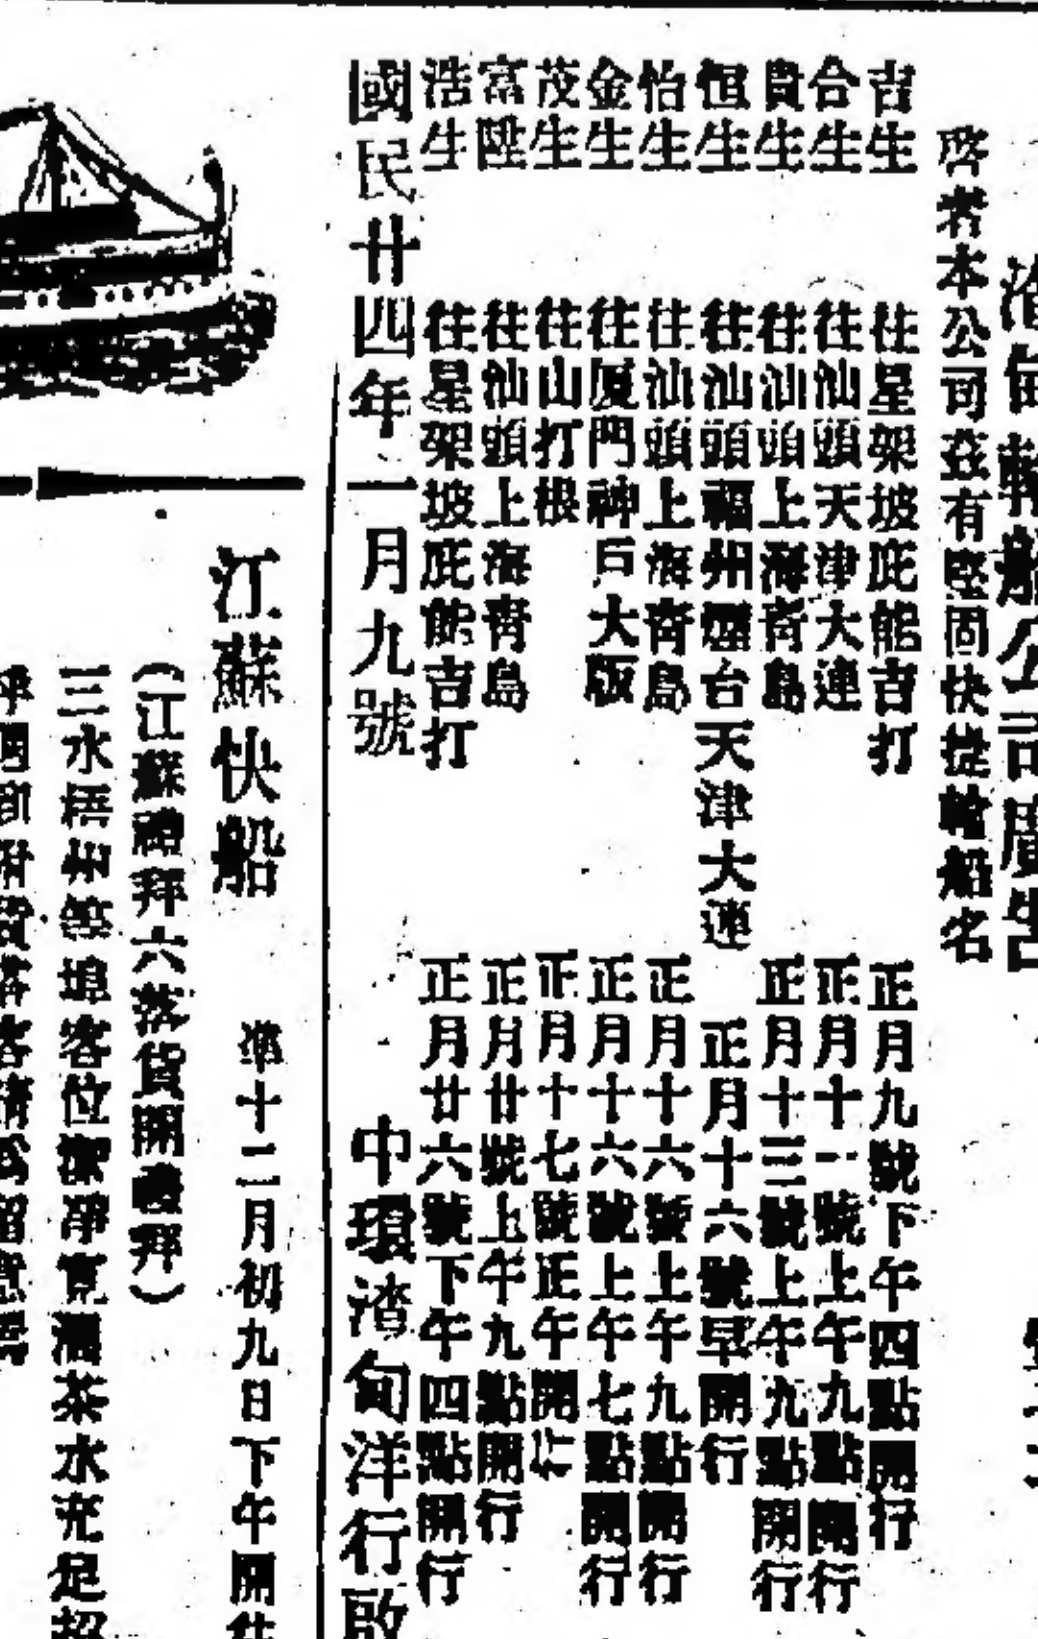 渣甸輪船公司廣告
啓者本公司茲有堅固快捷輪船名
吉生 往星架坡庇能吉打 正月九號下午四點開行
合生 往汕頭天津大連 正月十一號上午九點開行
貴生 往汕頭上海青島 正月十三號上午九點開行
恒生 往汕頭福州煙台天津大連 正月十六號早開行
怡生 往汕頭上海青島 正月十六號上午九點開行
金生 往厦門神戶大版 正月十六號上午七點開行
茂生 往山打根 正月十七號正午開行
富陞 往汕頭上海青島 正月廿號上午九點開行
浩生 往星架坡庇能吉打 正月廿六號下午四點開行
國民廿四年一月九號 中環渣甸洋行啟
江蘇快船 準十二月初九日下午開往
(江蘇禮拜六落貨開禮拜)
三水梧州等埠客位潔淨寬濶茶水充足招